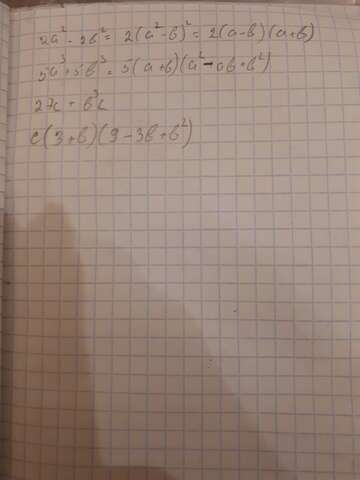 2a² - 2b² = 2(a² - b)² = 2(a-b)(a+b)
5a³ + 5b³ = 5(a+b)(a² - ab + b²)
27c + b³c
c(3+b)(9 - 3b + b²)